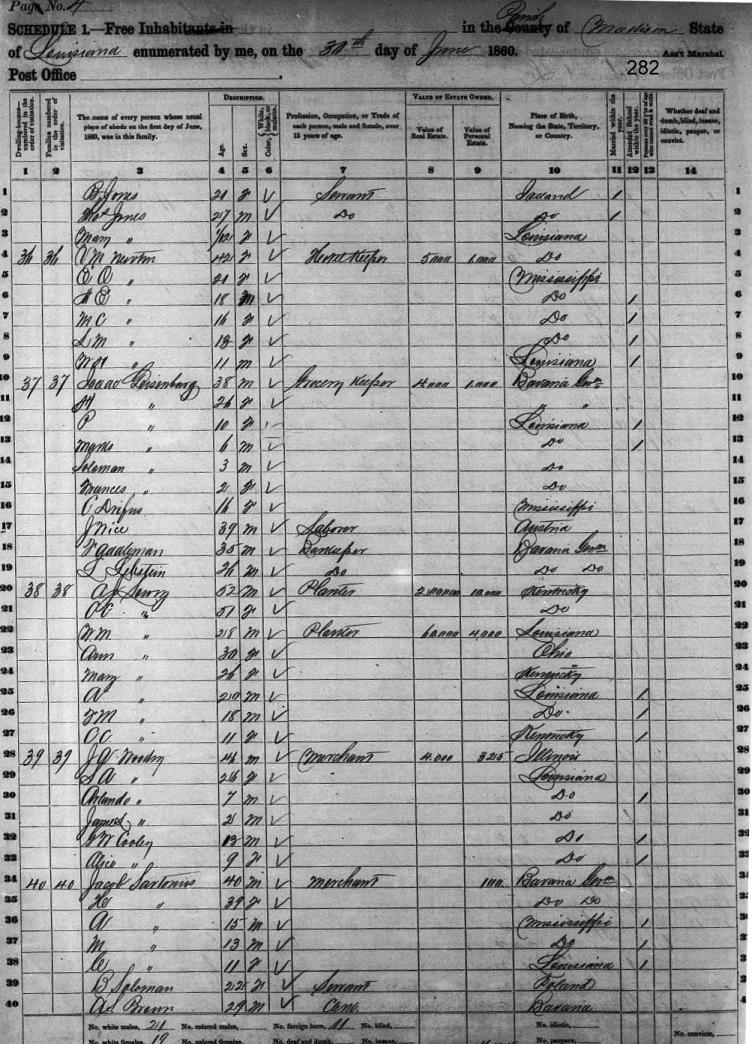 Page No. 4
SCHEDULE 1.—Free Inhabitants in in the County Parish of Madison State
of Louisiana enumerated by me, on the 30th day of June 1860. Ass't Marshal
Post Office 282
Dwelling-houses numbered in the order of visitation. Families numbered in the order of visitation. The name of every person whose usual place of abode on the first day of June, 1860, was in this family. DESCRIPTION. Age. Sex. Color, White, black, or mulatto. Profession, Occupation, or Trade of each person, male and female, over 15 years of age. VALUE OF ESTATE OWNED. Value of Real Estate. Value of Personal Estate. Place of Birth, Naming the State, Territory, or Country. Married within the year. Attended School within the year. Whether deaf and dumb, blind, insane, idiotic, pauper, or convict.
1 2 3 4 5 6 7 8 9 10 11 12 13 14
1 B Jones 21 f ✓ Servant / 1
2 Jones 27 m ✓ Do Do / 2
3 Mary " 1/12 f ✓ Louisiana 3
4 36 36 V M Newton 42 f ✓ House Keeper 5000 1.000 Do 4
5 E O " 21 f ✓ Mississippi 5
6 E " 18 m ✓ Do / 6
7 M C " 16 f ✓ Do / 7
8 S M " 13 f ✓ Do / 8
9 " 11 m ✓ Louisiana / 9
10 37 37 Isaac Geisenberg 38 m ✓ Grocery Keeper 4.000 1.000 Bavaria 10
11 H " 26 f ✓ " " 11
12 P " 10 f Louisiana / 12
13 Marks " 6 m ✓ Do / 13
14 Soloman " 3 m ✓ Do 14
15 Frances " 2 f ✓ Do 15
16 C Drifus 16 f ✓ Mississippi 16
17 J Nice 39 m ✓ Laborer Austria 17
18 35 m ✓ Barkeeper Bavaria 18
19 L 26 m ✓ Do Do Do 19
20 38 38 A 52 m ✓ Planter 10.000 Kentucky 20
21 O C " 51 f ✓ Do 21
22 W. M " 28 m ✓ Planter 60.000 4.000 Louisiana 22
23 Ann " 30 f ✓ Ohio 23
24 Mary " 26 f ✓ Kentucky 24
25 A " 20 m ✓ Louisiana / 25
26 M " 18 m ✓ Do / 26
27 O C " 11 f ✓ Kentucky / 27
28 39 39 J A 46 m ✓ Merchant 4.000 325 Illinois 28
29 S A " 26 f ✓ Louisiana 29
30 Orlando " 7 m ✓ Do / 30
31 James " 2 m ✓ Do 31
32 W Cooley 13 m ✓ Do / 32
33 Alice " " 9 f ✓ Do / 33
34 40 40 Jacob Sartorius 40 m ✓ Merchant 100 Bavaria 34
35 " 39 f ✓ Do Do 35
36 A " 15 m ✓ Mississippi / 36
37 M " 13 m ✓ Do / 37
38 " 11 f ✓ Louisiana / 38
39 B Soloman 22 f ✓ Servant Poland 39
40 Brown 29 m ✓ Bavaria 40
No. white males, 21 No. colored males, No. foreign born, 11 No. blind, No. idiotic,
No. white females, 19 No. colored females, No. deaf and dumb, No. insane, No. paupers, No. convicts,